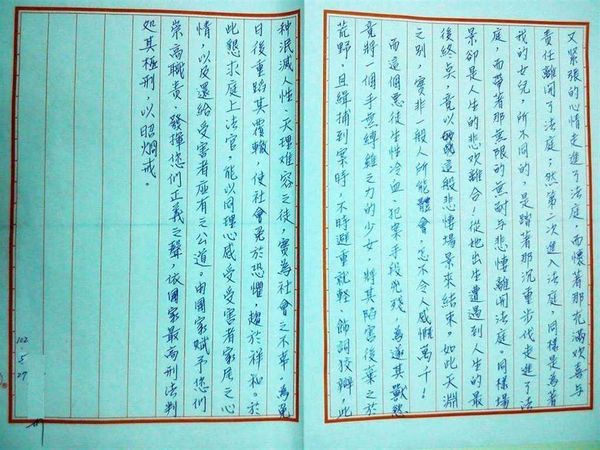 又緊張的心情走進了法庭，而懷著那充滿歡喜与
責任離開了法庭；然第二次進入法庭，同樣是為著
我的女兒，所不同的，是踏著那沉重步代走進了法
庭，而帶著那無限的無耐与悲慟離開法庭。同樣場
景卻是人生的悲歡離合！從她出生遭遇到人生的最
後終奌，竟以這般悲慘場景來結束。如此天淵
之別，實非一般人所能體會，怎不令人感慨萬千！
而這個惡徒生性冷血、犯案手段兇殘，為遂其獸慾
竟將一個手無縛雞之力的少女，將其陷害後棄之於
荒野，且緝捕到案時，不時避重就輕、飾詞狡辯，此
種泯滅人性、天理難容之徒，實為社會之不幸，為免
日後重蹈其覆轍，使社會免於恐懼，趨於祥和。於
此懇求庭上法官，能以同理心感受受害者家屬之心
情，以及還給受害者應有之公道。由國家賦予您們
崇高職責，發揮您們正義之聲，依國家最高刑法判
処其極刑，以昭炯戒。
102
5
27